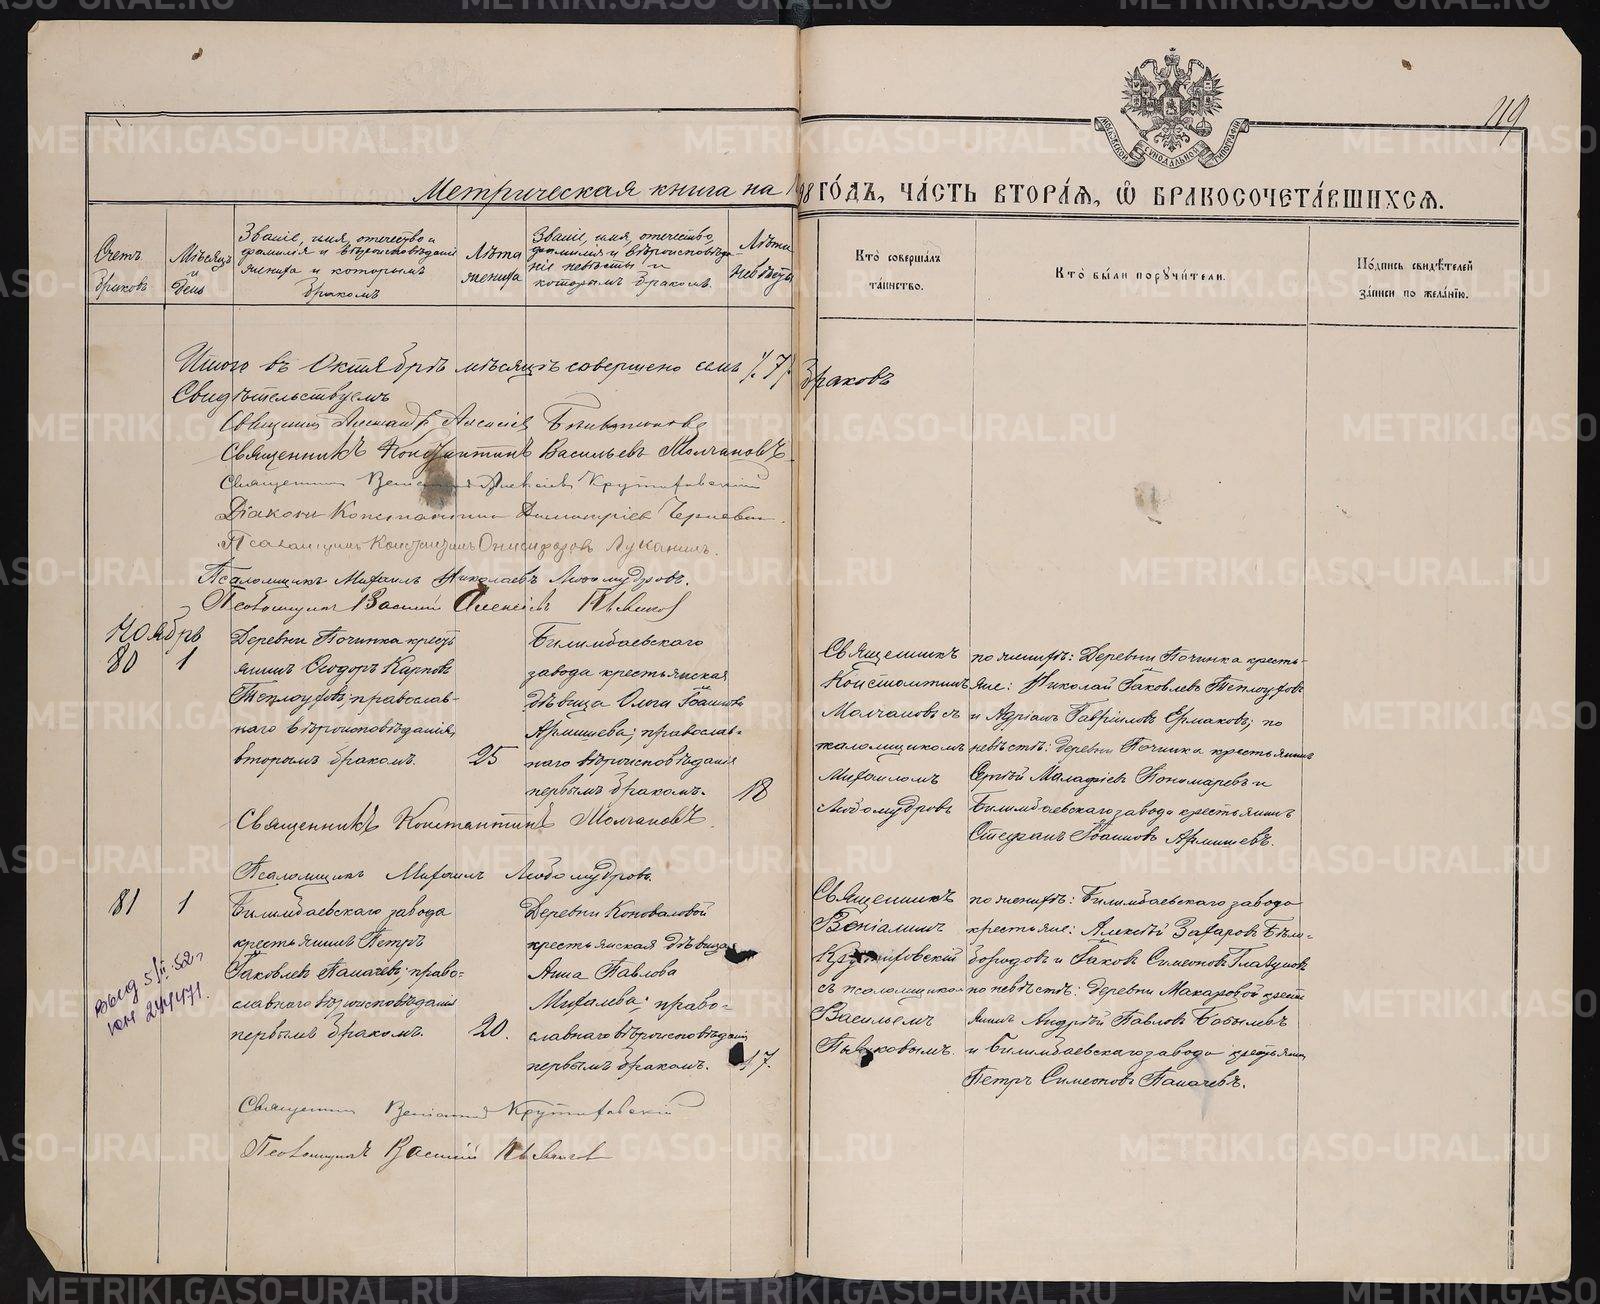 119
Метрическая книга на 1898 го́дъ, ча́сть втора́я, ѡ҆ бракосочета́вшихся.
МОСКОВСКОЙ СИНОДАЛЬНОЙ ТИПОГРАФІИ
Счетъ браковъ
Мѣсяцъ и день
Званіе, имя, отечество и фамилія и вѣроисповѣданіе жениха и которымъ бракомъ
Лѣта жениха
Званіе, имя, отечество, фамилія и вѣроисповѣданіе невѣсты и которымъ бракомъ.
Лѣта невѣсты
Кто̀ соверша́лъ та́инство.
Кто̀ бы́ли поручи́тели.
По́дпись свидѣ́телей за́писи по жела́нію.
Итого въ Октябрѣ мѣсяцѣ совершено семь /7/ браковъ
Свидѣтельствуемъ
Священникъ Александръ Алексѣевъ
Священникъ Константинъ Васильевъ Молчановъ
Священникъ Веніаминъ Алексѣевъ
Діаконъ Константинъ Димитріевъ
Псаломщикъ Константинъ Онисифоровъ Луканинъ.
Псаломщикъ Михаилъ Николаевъ Любомудровъ.
Псаломщикъ Василій Алексѣевъ Пьянковъ
Ноябрь
80
1
Деревни Починка кресть-
янинъ Ѳеодоръ Карповъ
Теплоуховъ; православ-
наго вѣроисповѣданія,
вторымъ бракомъ.
25
Билимбаевскаго
завода крестьянская
дѣвица Ольга Іоаннова
Армишева; православ-
наго вѣроисповѣданія
первымъ бракомъ.
18
Священникъ
Константинъ
Молчановъ съ
псаломщикомъ
Михаиломъ
Любомудровъ
по женихѣ: Деревни Починка кресть-
яне: Николай Іаковлевъ Теплоуховъ
и Адріанъ Гавріиловъ Ермаковъ; по
невѣстѣ: деревни Починка крестьянинъ
Сергѣй Малафіевъ Пономаревъ и
Билимбаевскаго завода крестьянинъ
Стефанъ Іоанновъ Армишевъ.
Священникъ Константинъ Молчановъ
Псаломщикъ Михаилъ Любомудровъ.
81
1
Билимбаевскаго завода
крестьянинъ Петръ
Іаковлевъ Паначевъ; право-
славнаго вѣроисповѣданія
первымъ бракомъ.
20.
Деревни Коноваловой
крестьянская дѣвица
Анна Павлова
Михалева; право-
славнаго вѣроисповѣданія
первымъ бракомъ.
17.
Священникъ
Веніаминъ
съ псаломщикомъ
Васильемъ
Пьянковымъ.
по женихѣ: Билимбаевскаго завода
крестьяне: Алексѣй Захаровъ Бѣло-
бородовъ и Іаковъ Симеоновъ Глазуновъ
по невѣстѣ: деревни Макаровой кресть-
янинъ Андрѣй Павловъ Бобылевъ
и Билимбаевскаго завода крестьянинъ
Петръ Симеоновъ Паначевъ.
Священникъ Веніаминъ
Псаломщикъ Василій Пьянковъ
выд 5/II.52 г
244471.
METRIKI.GASO-URAL.RU